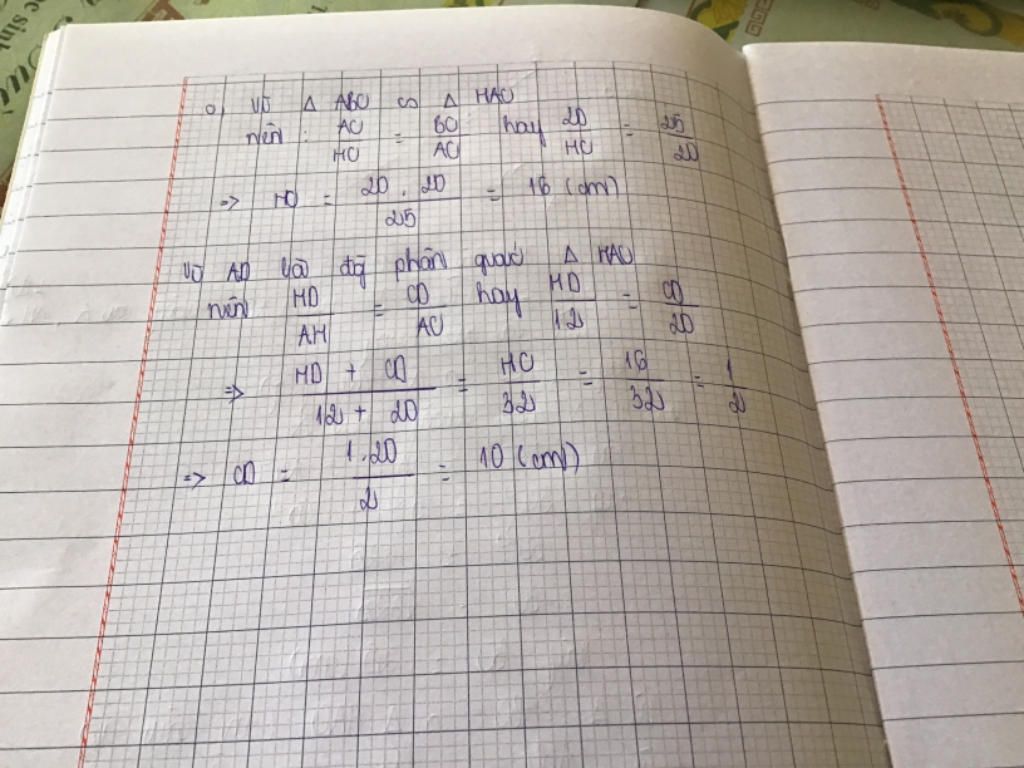 c, Vì Δ ABC ∽ Δ HAC
nên : AC/HC = BC/AC hay 20/HC = 25/20
=> HC = 20 . 20/25 = 16 (cm)
Vì AD là đg phân giác Δ HAC
nên HD/AH = CD/AC hay HD/12 = CD/20
=> HD + CD/12 + 20 = HC/32 = 16/32 = 1/2
=> CD = 1.20/2 = 10 (cm)